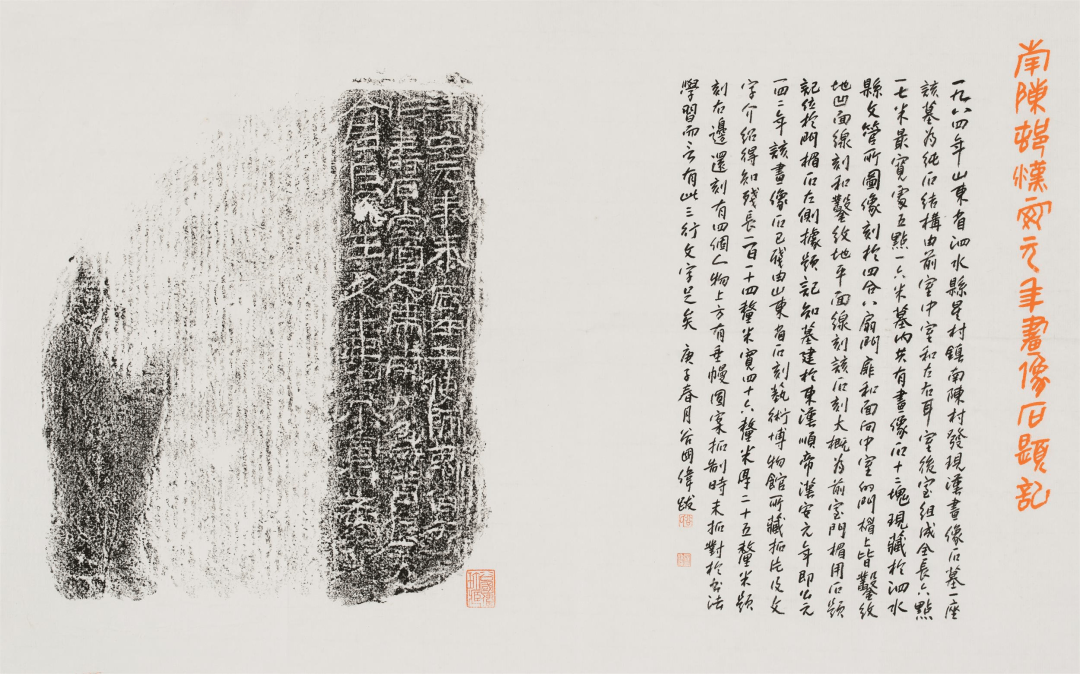 南陳邨漢安元年畫像石題記
一九八四年山東省泗水縣星村鎮南陳村發現漢畫像石墓一座
該墓為純石結構由前室中室和左右耳室後室組成全長六點
一七米最寬處五點一六米墓內共有畫像石十二塊現藏於泗水
縣文管所圖像刻於四合八扇門扉和面向中室的門楣上皆鑿紋
地凹面線刻和鑿紋地平面線刻該石刻大概為前室門楣用石題
記位於門楣石左側據題記知墓建於東漢順帝漢安元年即公元
一四二年該畫像石已殘由山東省石刻藝術博物館所藏拓片及文
字介紹得知殘長一百二十四釐米寬四十六釐米厚二十五釐米題
刻右邊還刻有四個人物上方有垂幔圖案拓制時未拓對於書法
學習而言有此三行文字足矣 庚子春月谷國偉跋